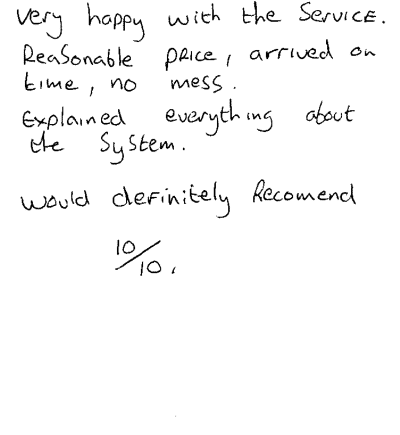 very happy with the Service.
Reasonable price, arrived on
time, no mess.
Explained everything about
the System.
would definitely Recomend
10/10.